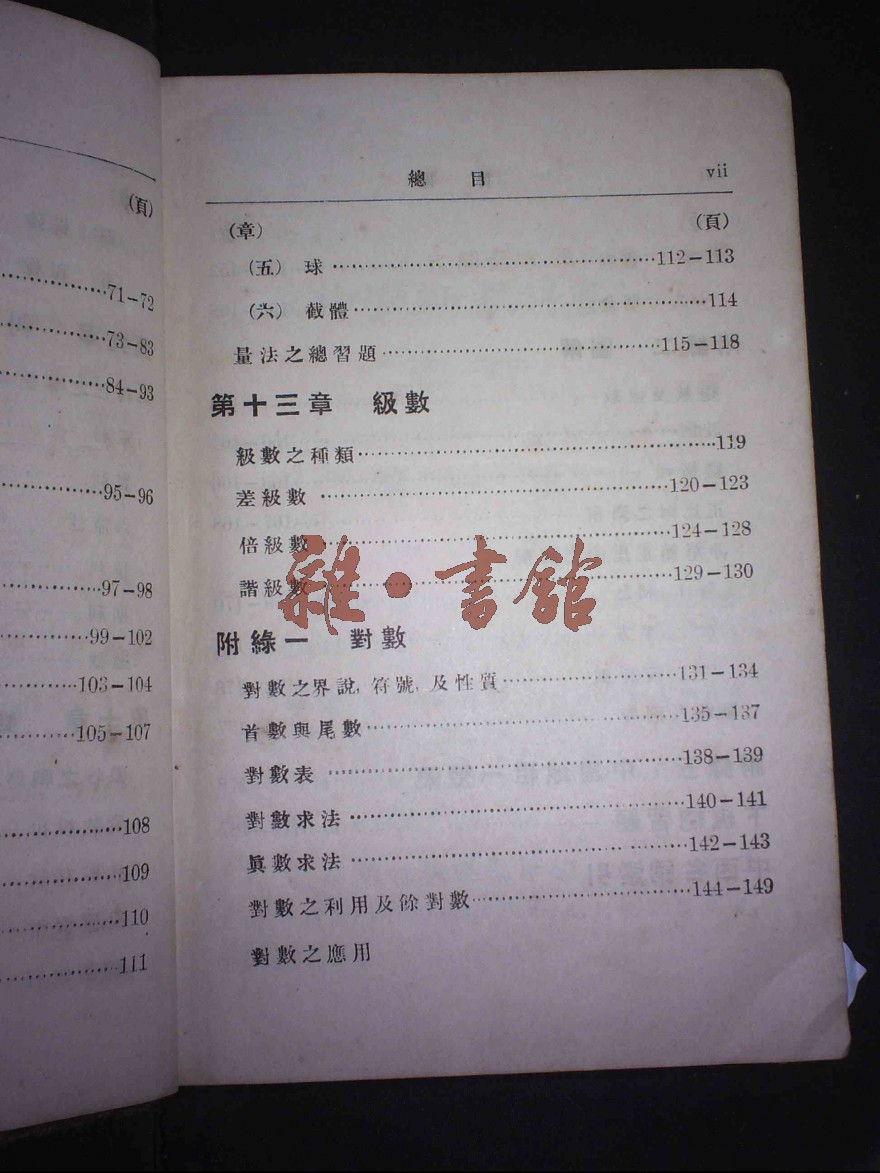 (頁)
71–72
73–83
84–93
95–96
97–98
99–102
103–104
105–107
108
109
110
111
總 目 vii
(章) (頁)
(五) 球 112–113
(六) 截體 114
量法之總習題 115–118
第十三章 級數
級數之種類 119
差級數 120–123
倍級數 124–128
諧級數 129–130
附綠一 對數
對數之界說, 符號, 及性質 131–134
首數與尾數 135–137
對數表 138–139
對數求法 140–141
眞數求法 142–143
對數之利用及餘對數 144–149
對數之應用
雜·書館